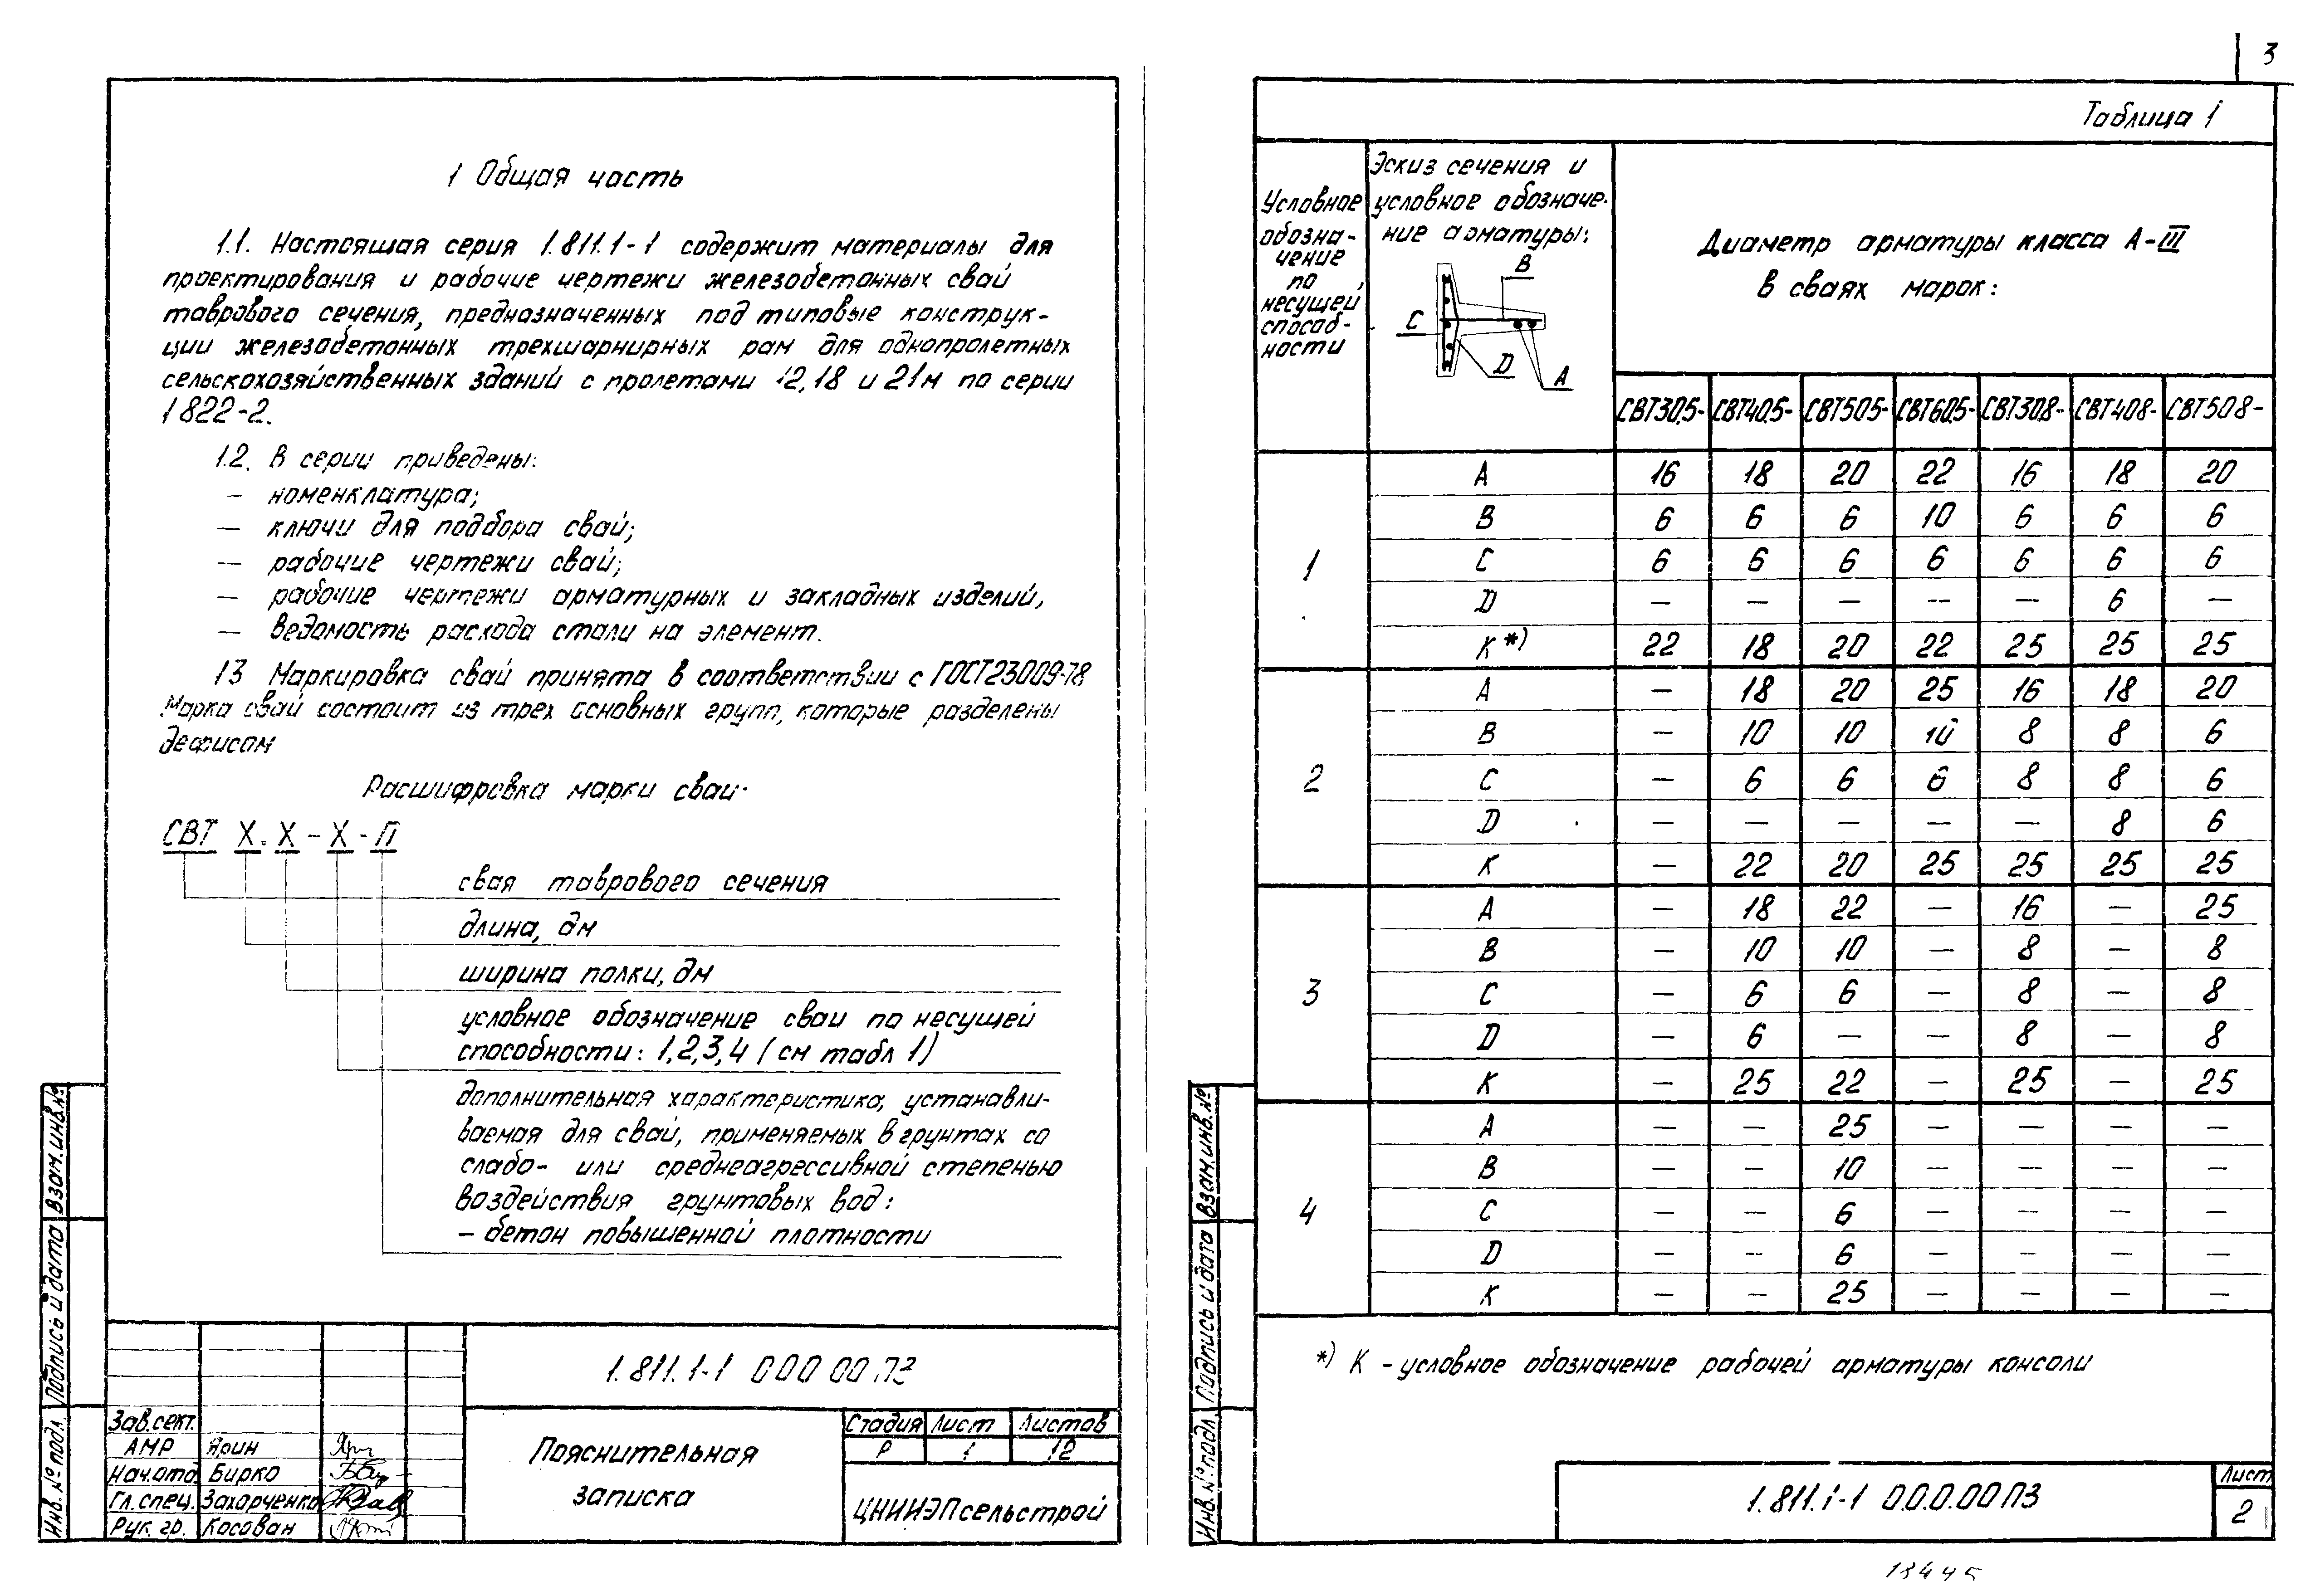 1 Общая часть
1.1. Настоящая серия 1.811.1-1 содержит материалы для
проектирования и рабочие чертежи железобетонных свай
таврового сечения, предназначенных под типовые конструк-
ции железобетонных трехшарнирных рам для однопролетных
сельскохозяйственных зданий с пролетами 12,18 и 21м по серии
1822-2.
1.2. В серии приведены:
- номенклатура;
- ключи для подбора свай;
- рабочие чертежи свай;
- рабочие чертежи арматурных и закладных изделий,
- ведомость расхода стали на элемент.
13 Маркировка свай принята в соответствии с ГОСТ23009-78
Марка свай состоит из трех основных групп, которые разделены
дефисом
Расшифровка марки сваи·
СВТ Х.Х-Х-П
свая таврового сечения
длина, дм
ширина полки, дм
условное обозначение сваи по несущей
способности: 1,2,3,4 (см табл 1)
дополнительная характеристика, устанавли-
ваемая для свай, применяемых в грунтах со
слабо- или среднеагрессивной степенью
воздействия грунтовых вод:
- бетон повышенной плотности
1.811.1-1 000 00 ПЗ
Пояснительная
записка
Стадия Лист Листов
Р 1 12
ЦНИИЭПсельстрой
Зав.сект.
АМР Ярин
Нач.отд. Бирко
Гл.спец. Захарченко
Рук. гр. Косован
Инв.№подл. Подпись и дата Взам.инв.№
3
Таблица 1
Условное
обозна-
чение
по
несущей
способ-
ности
Эскиз сечения и
условное обозначе-
ние арматуры:
B
C
D
A
Диаметр арматуры класса А-III
в сваях марок:
СВТ30.5- СВТ40.5- СВТ505- СВТ60.5- СВТ30.8- СВТ408- СВТ508-
1
A 16 18 20 22 16 18 20
B 6 6 6 10 6 6 6
C 6 6 6 6 6 6 6
D — — — — — 6 —
К*) 22 18 20 22 25 25 25
2
A — 18 20 25 16 18 20
B — 10 10 10 8 8 6
C — 6 6 6 8 8 6
D — — — — — 8 6
К — 22 20 25 25 25 25
3
A — 18 22 — 16 — 25
B — 10 10 — 8 — 8
C — 6 6 — 8 — 8
D — 6 — — 8 — 8
К — 25 22 — 25 — 25
4
A — — 25 — — — —
B — — 10 — — — —
C — — 6 — — — —
D — — 6 — — — —
К — — 25 — — — —
*) К - условное обозначение рабочей арматуры консоли
1.811.1-1 0.0.0.00ПЗ
Лист
2
Инв.№подл. Подпись и дата Взам.инв.№
18445